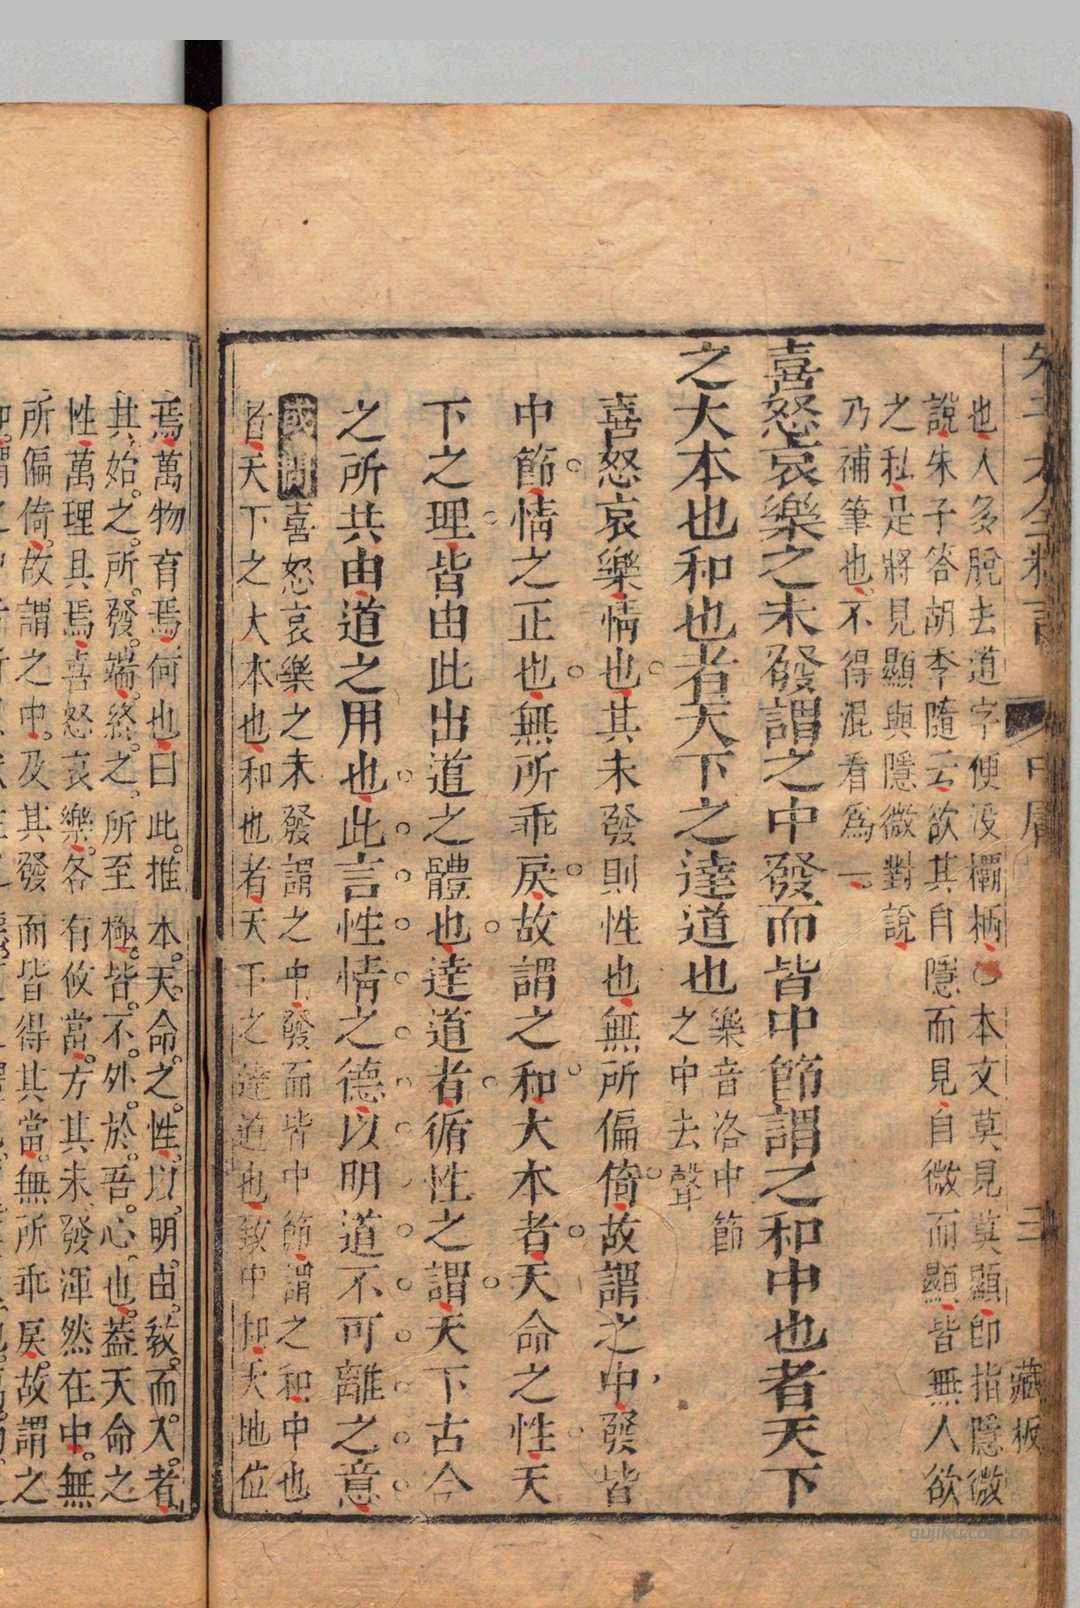 也人多脫去道字便没欛柄○本文莫見莫顯卽指隱微
說朱子答胡季隨云欲其自隱而見自微而顯皆無人欲
之私是將見顯與隱微對說
乃補筆也不得混看爲一
喜怒哀樂之未發謂之中發而皆中節謂之和中也者天下
之大本也和也者天下之達道也
樂音洛中節
之中去聲
喜怒哀樂情也其未發則性也無所偏倚故謂之中發皆
中節情之正也無所乖戾故謂之和大本者天命之性天
下之理皆由此出道之體也達道者循性之謂天下古今
之所共由道之用也此言性情之德以明道不可離之意
喜怒哀樂之未發謂之中發而皆中節謂之和中也
者天下之大本也和也者天下之達道也致中和天地位
焉萬物育焉何也曰此推本天命之性以明由教而入者
其始之所發端終之所至極皆不外於吾心也蓋天命之
性萬理具焉喜怒哀樂各有攸當方其未發渾然在中無
所偏倚故謂之中及其發而皆得其當無所乖戾故謂之
中庸
三
藏板
gujiku.com.cn